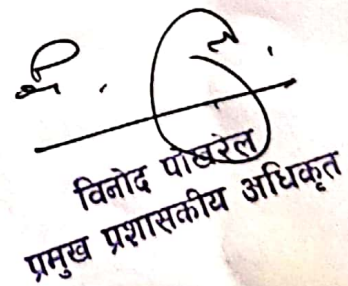 विनोद पोखरेल
प्रमुख प्रशासकीय अधिकृत